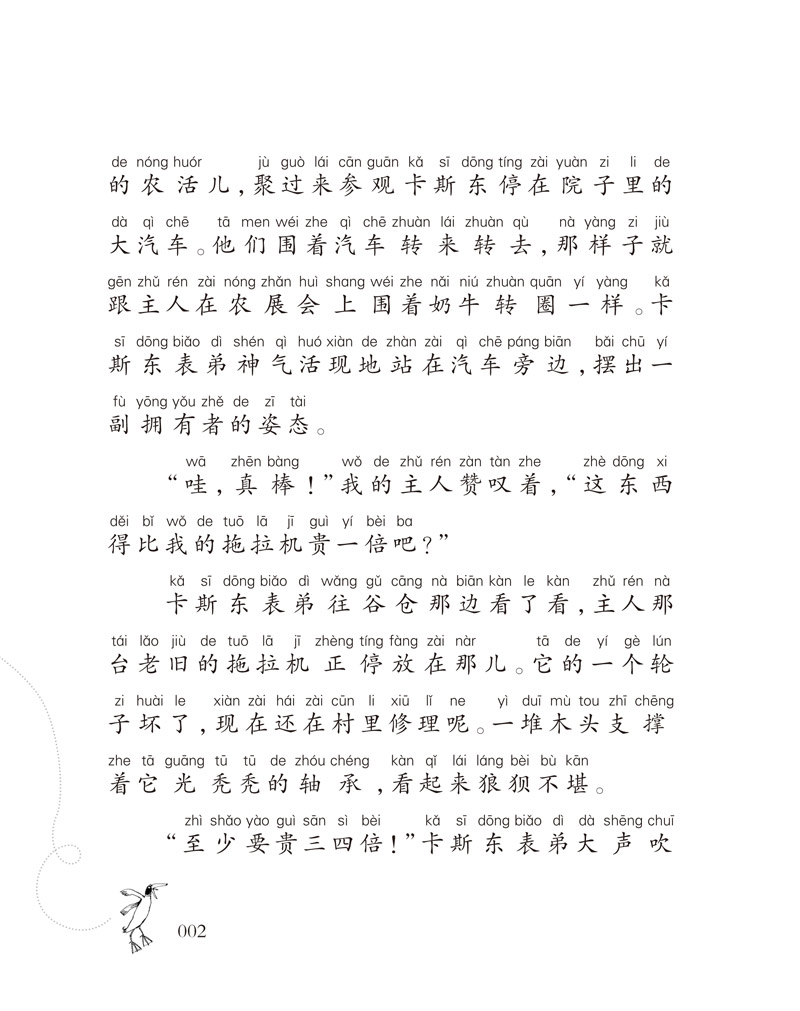 de nóng huór jù guò lái cān guān kǎ sī dōng tíng zài yuàn zi li de
的农活儿，聚过来参观卡斯东停在院子里的
dà qì chē tā men wéi zhe qì chē zhuàn lái zhuàn qù nà yàng zi jiù
大汽车。他们围着汽车转来转去，那样子就
gēn zhǔ rén zài nóng zhǎn huì shang wéi zhe nǎi niú zhuàn quān yí yàng kǎ
跟主人在农展会上围着奶牛转圈一样。卡
sī dōng biǎo dì shén qì huó xiàn de zhàn zài qì chē páng biān bǎi chū yí
斯东表弟神气活现地站在汽车旁边，摆出一
fù yōng yǒu zhě de zī tài
副拥有者的姿态。
wā zhēn bàng wǒ de zhǔ rén zàn tàn zhe zhè dōng xi
“哇，真棒！”我的主人赞叹着，“这东西
děi bǐ wǒ de tuō lā jī guì yí bèi ba
得比我的拖拉机贵一倍吧？”
kǎ sī dōng biǎo dì wǎng gǔ cāng nà biān kàn le kàn zhǔ rén nà
卡斯东表弟往谷仓那边看了看，主人那
tái lǎo jiù de tuō lā jī zhèng tíng fàng zài nàr tā de yí gè lún
台老旧的拖拉机正停放在那儿。它的一个轮
zi huài le xiàn zài hái zài cūn li xiū lǐ ne yì duī mù tou zhī chēng
子坏了，现在还在村里修理呢。一堆木头支撑
zhe tā guāng tū tū de zhóu chéng kàn qǐ lái láng bèi bù kān
着它光秃秃的轴承，看起来狼狈不堪。
zhì shǎo yào guì sān sì bèi kǎ sī dōng biǎo dì dà shēng chuī
“至少要贵三四倍！”卡斯东表弟大声吹
002